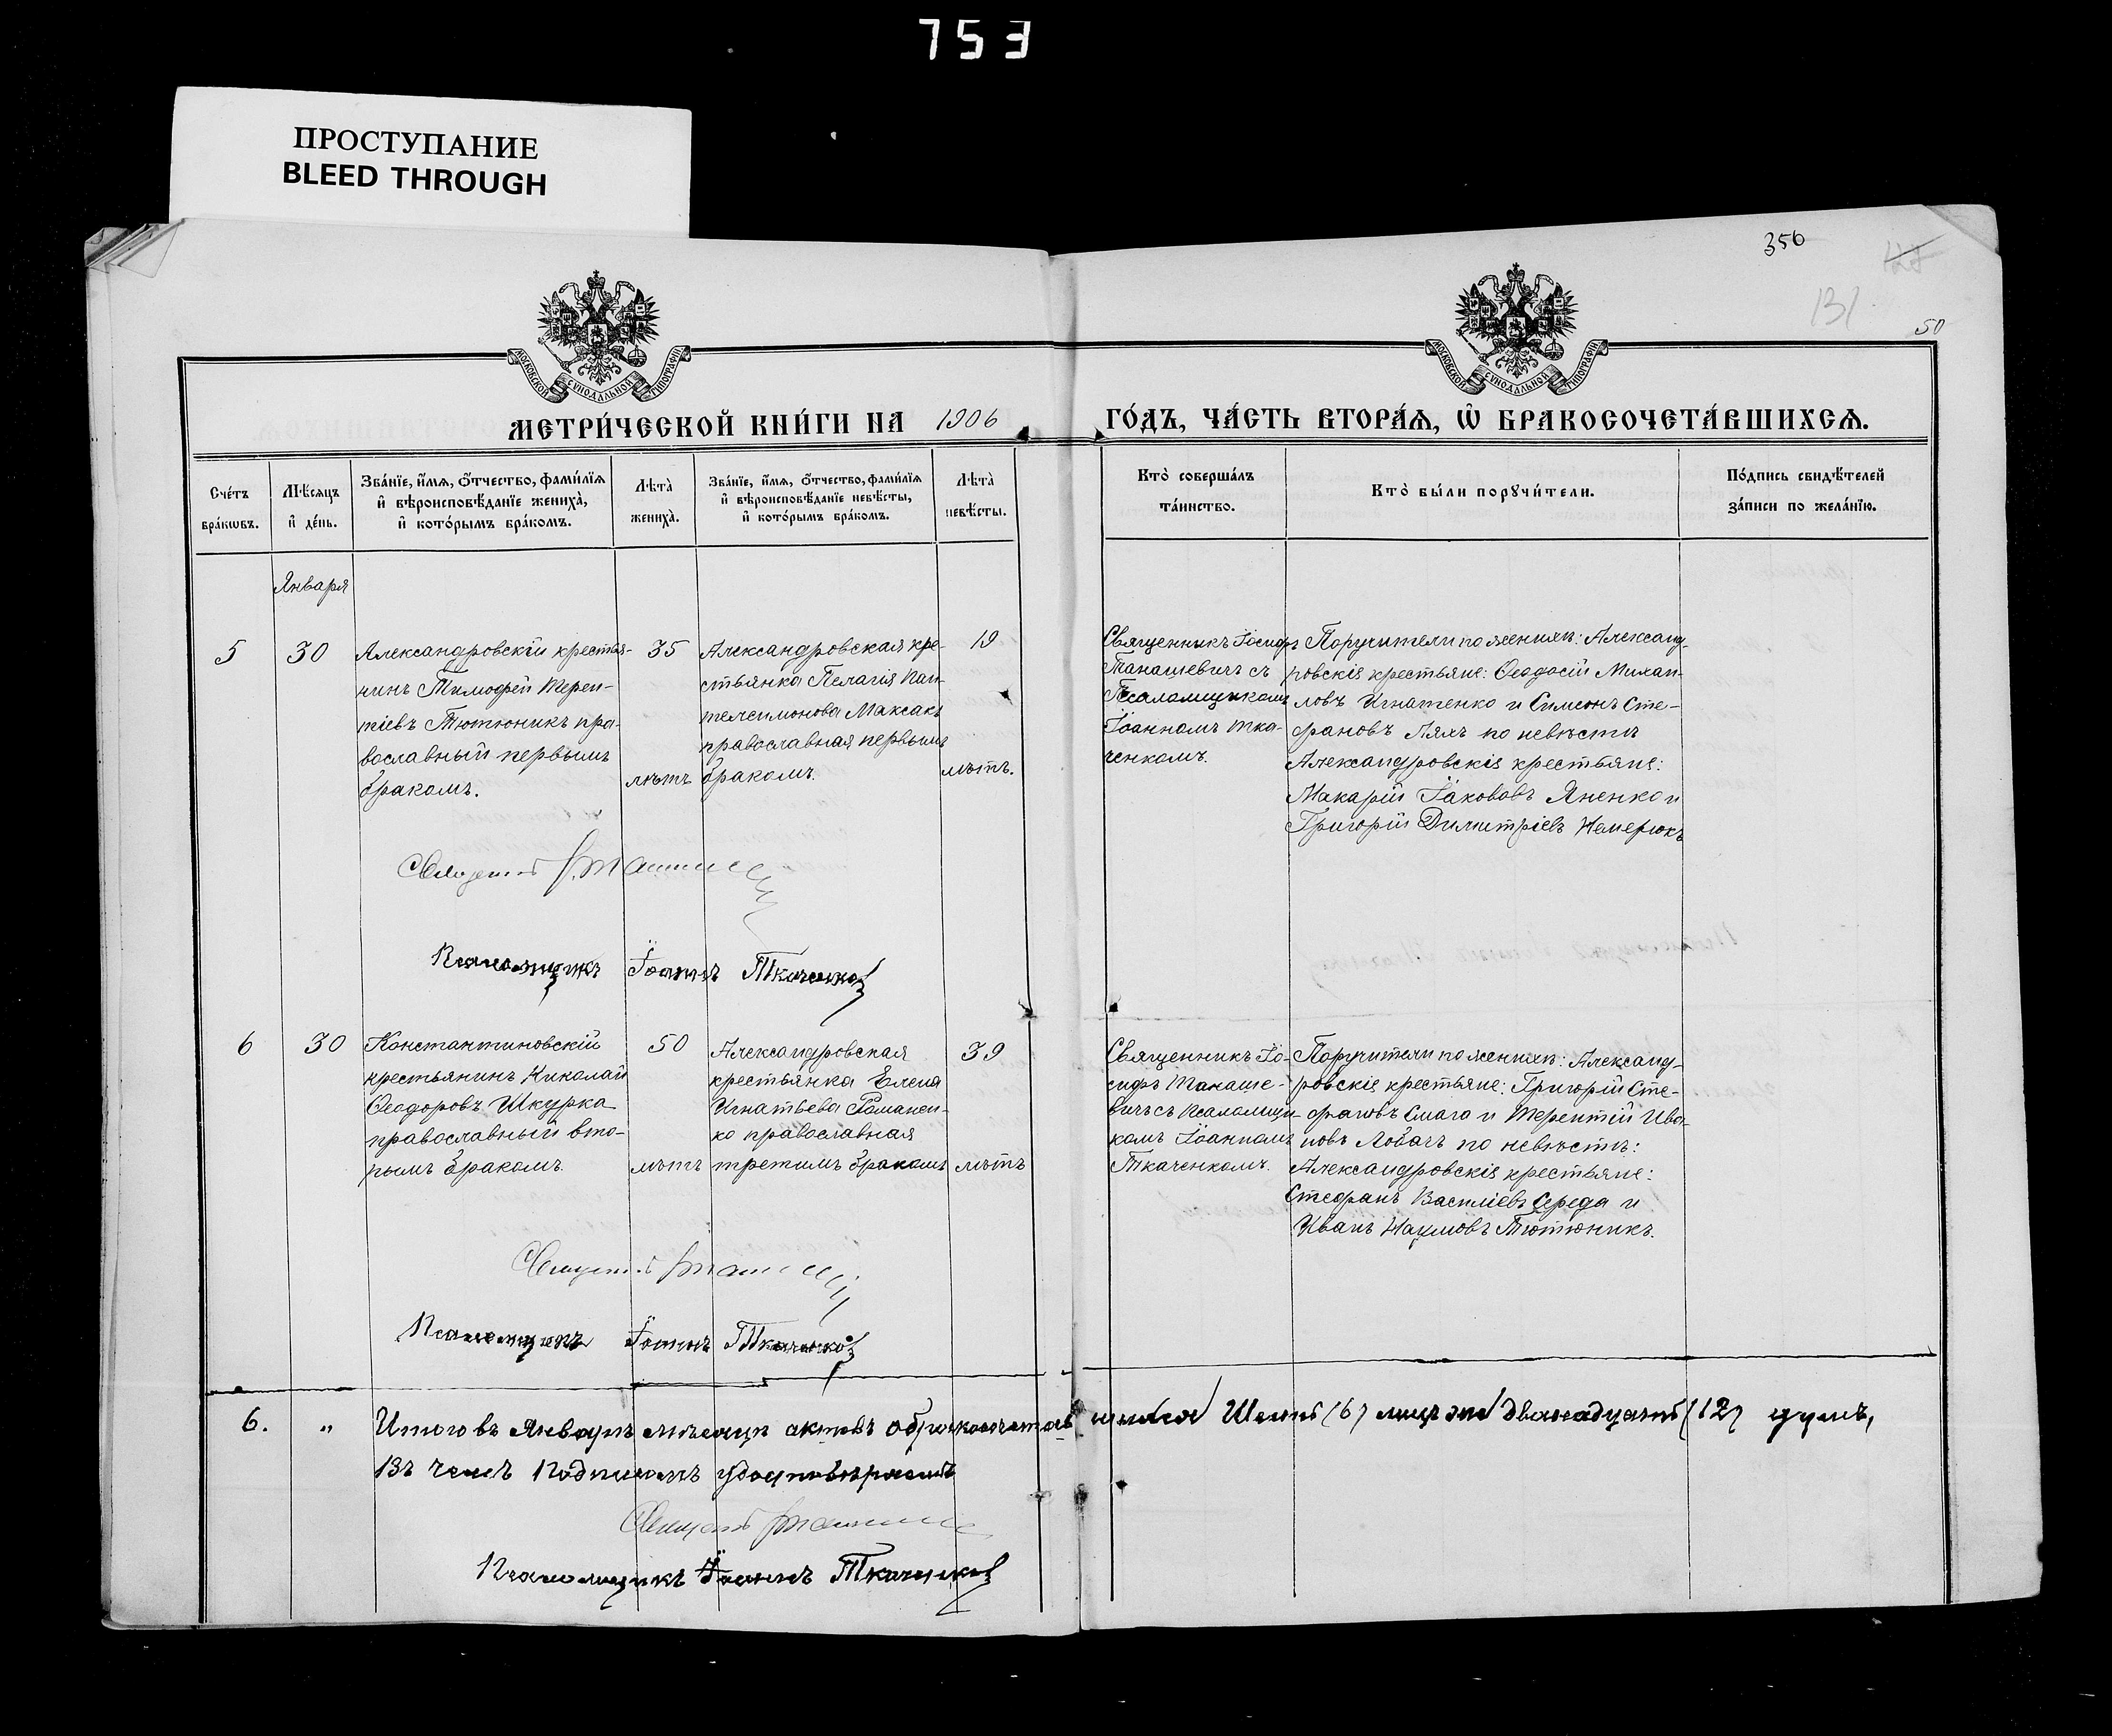 753
ПРОСТУПАНИЕ
BLEED THROUGH
356
131
50
МОСКОВСКОЙ СУНОДАЛЬНОЙ ТИПОГРАФІИ
МОСКОВСКОЙ СУНОДАЛЬНОЙ ТИПОГРАФІИ
МЕТРИ́ЧЕСКОЙ КНИ́ГИ НА 1906
ГО́ДЪ, ЧА́СТЬ ВТОРА́Ѧ, Ѽ БРАКОСОЧЕТА́ВШИХСѦ.
Сче́тъ
бра́кωвъ.
Мѣ́сѧцъ
и҆ де́нь.
Зва́нїе, и҆́мѧ, ѻ҆́тчество, фами́лїѧ
и҆ вѣроисповѣ́данїе жениха̀,
и҆ кото́рымъ бра́комъ.
Лѣта̀
жениха̀.
Зва́нїе, и҆́мѧ, ѻ҆́тчество, фами́лїѧ
и҆ вѣроисповѣ́данїе невѣ́сты,
и҆ кото́рымъ бра́комъ.
Лѣта̀
невѣ́сты.
Кто̀ соверша́лъ
та́инство.
Кто̀ бы́ли порꙋчи́тели.
По́дпись свидѣ́телей
за́писи по жела́нїю.
Января
5
30
Александровскій крестья-
нинъ Тимофей Терен-
тіевъ Тютюникъ пра-
вославный первымъ
бракомъ.
35
лѣтъ
Александровская кре-
стьянка Пелагія Пан-
телеимонова Максакъ
православная первымъ
бракомъ.
19
лѣтъ.
Священникъ Іосифъ
Танашевичъ съ
Псаломщикомъ
Іоанномъ Тка-
ченкомъ.
Поручители по женихѣ: Александ-
ровскіе крестьяне: Ѳеодосій Михаи-
ловъ Игнатенко и Симеонъ Сте-
фановъ Ляхъ по невѣстѣ
Александровскіе крестьяне:
Макарій Іаковъвъ Яненко и
Григорій Димитріевъ Немерюкъ
Псаломщикъ Іоаннъ Ткаченко
6
30
Константиновскій
крестьянинъ Николай
Ѳеодоровъ Шкурка
православный вто-
рымъ бракомъ.
50
лѣтъ
Александровская
крестьянка Елена
Игнатьева Романен-
ко православная
третимъ бракомъ
39
лѣтъ
Священникъ Іо-
сифъ Танаше-
вичъ съ Псаломщи-
комъ Іоанномъ
Ткаченкомъ.
Поручители по женихѣ: Александ-
ровскіе крестьяне: Григорій Сте-
фановъ Смаго и Терентій Ива-
новъ Лобачъ по невѣстѣ:
Александровскіе крестьяне:
Стефанъ Василіевъ Середа и
Иванъ Наумовъ Тютюникъ.
Псаломщикъ Іоаннъ Ткаченко
6. " Итого въ Январѣ мѣсяцѣ актовъ о бракосочетав шихся Шесть (6) двенадцать (12) душъ,
Въ чемъ Подписомъ удостовѣряемъ
Псаломщикъ Іоаннъ Ткаченко